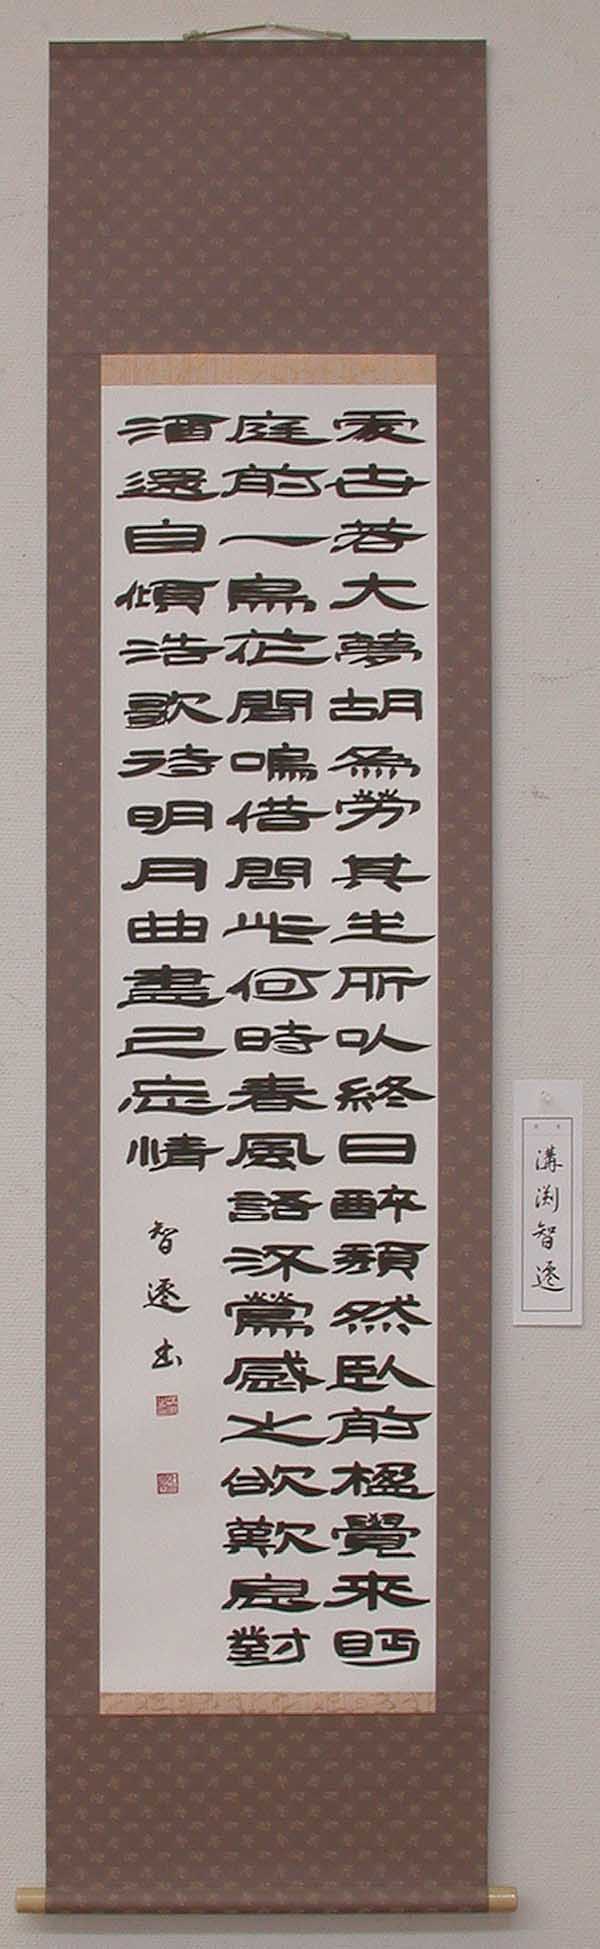 處世若大夢胡為勞其生所以終日醉頹然臥前楹覺來眄
庭前一鳥花間鳴借問此何時春風語流鶯感之欲歎息對
酒還自傾浩歌待明月曲盡已忘情
智遷書
溝渕智遷